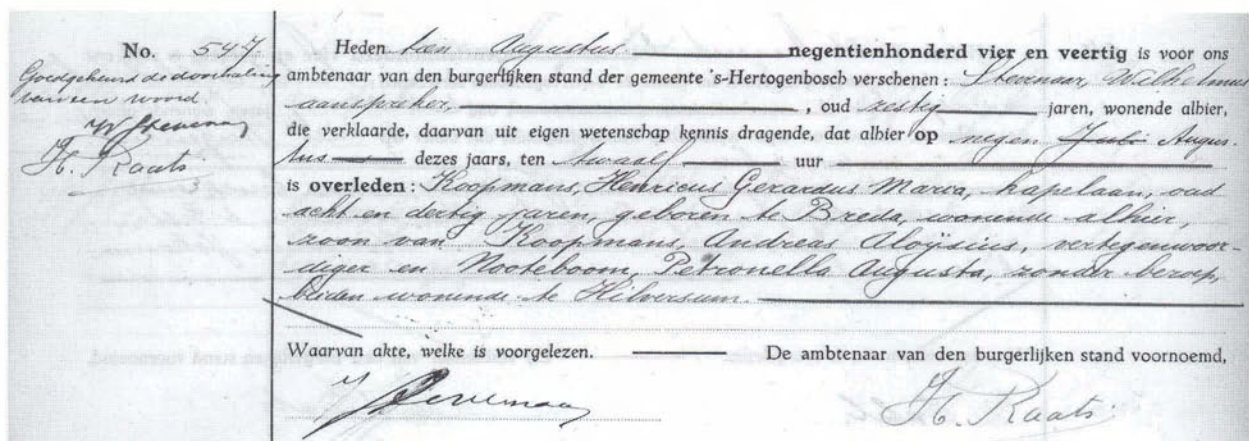 No. 547.
Goedgekeurd de doorhaling
van een woord.
W Stevenaar
H. Raats
Heden tien Augustus negentienhonderd vier en veertig is voor ons
ambtenaar van den burgerlijken stand der gemeente 's-Hertogenbosch verschenen: Stevenaar, Wilhelmus
aanspreker, , oud zestig jaren, wonende alhier,
die verklaarde, daarvan uit eigen wetenschap kennis dragende, dat alhier op negen Juli Augus-
tus dezes jaars, ten twaalf uur
is overleden: Koopmans, Henricus Gerardus Maria, kapelaan, oud
acht en dertig jaren, geboren te Breda, wonende alhier,
zoon van Koopmans, Andreas Aloÿsius, vertegenwoor-
diger en Nooteboom, Petronella Augusta, zonder beroep,
beiden wonende te Hilversum.
Waarvan akte, welke is voorgelezen. De ambtenaar van den burgerlijken stand voornoemd,
W Stevenaar
H. Raats